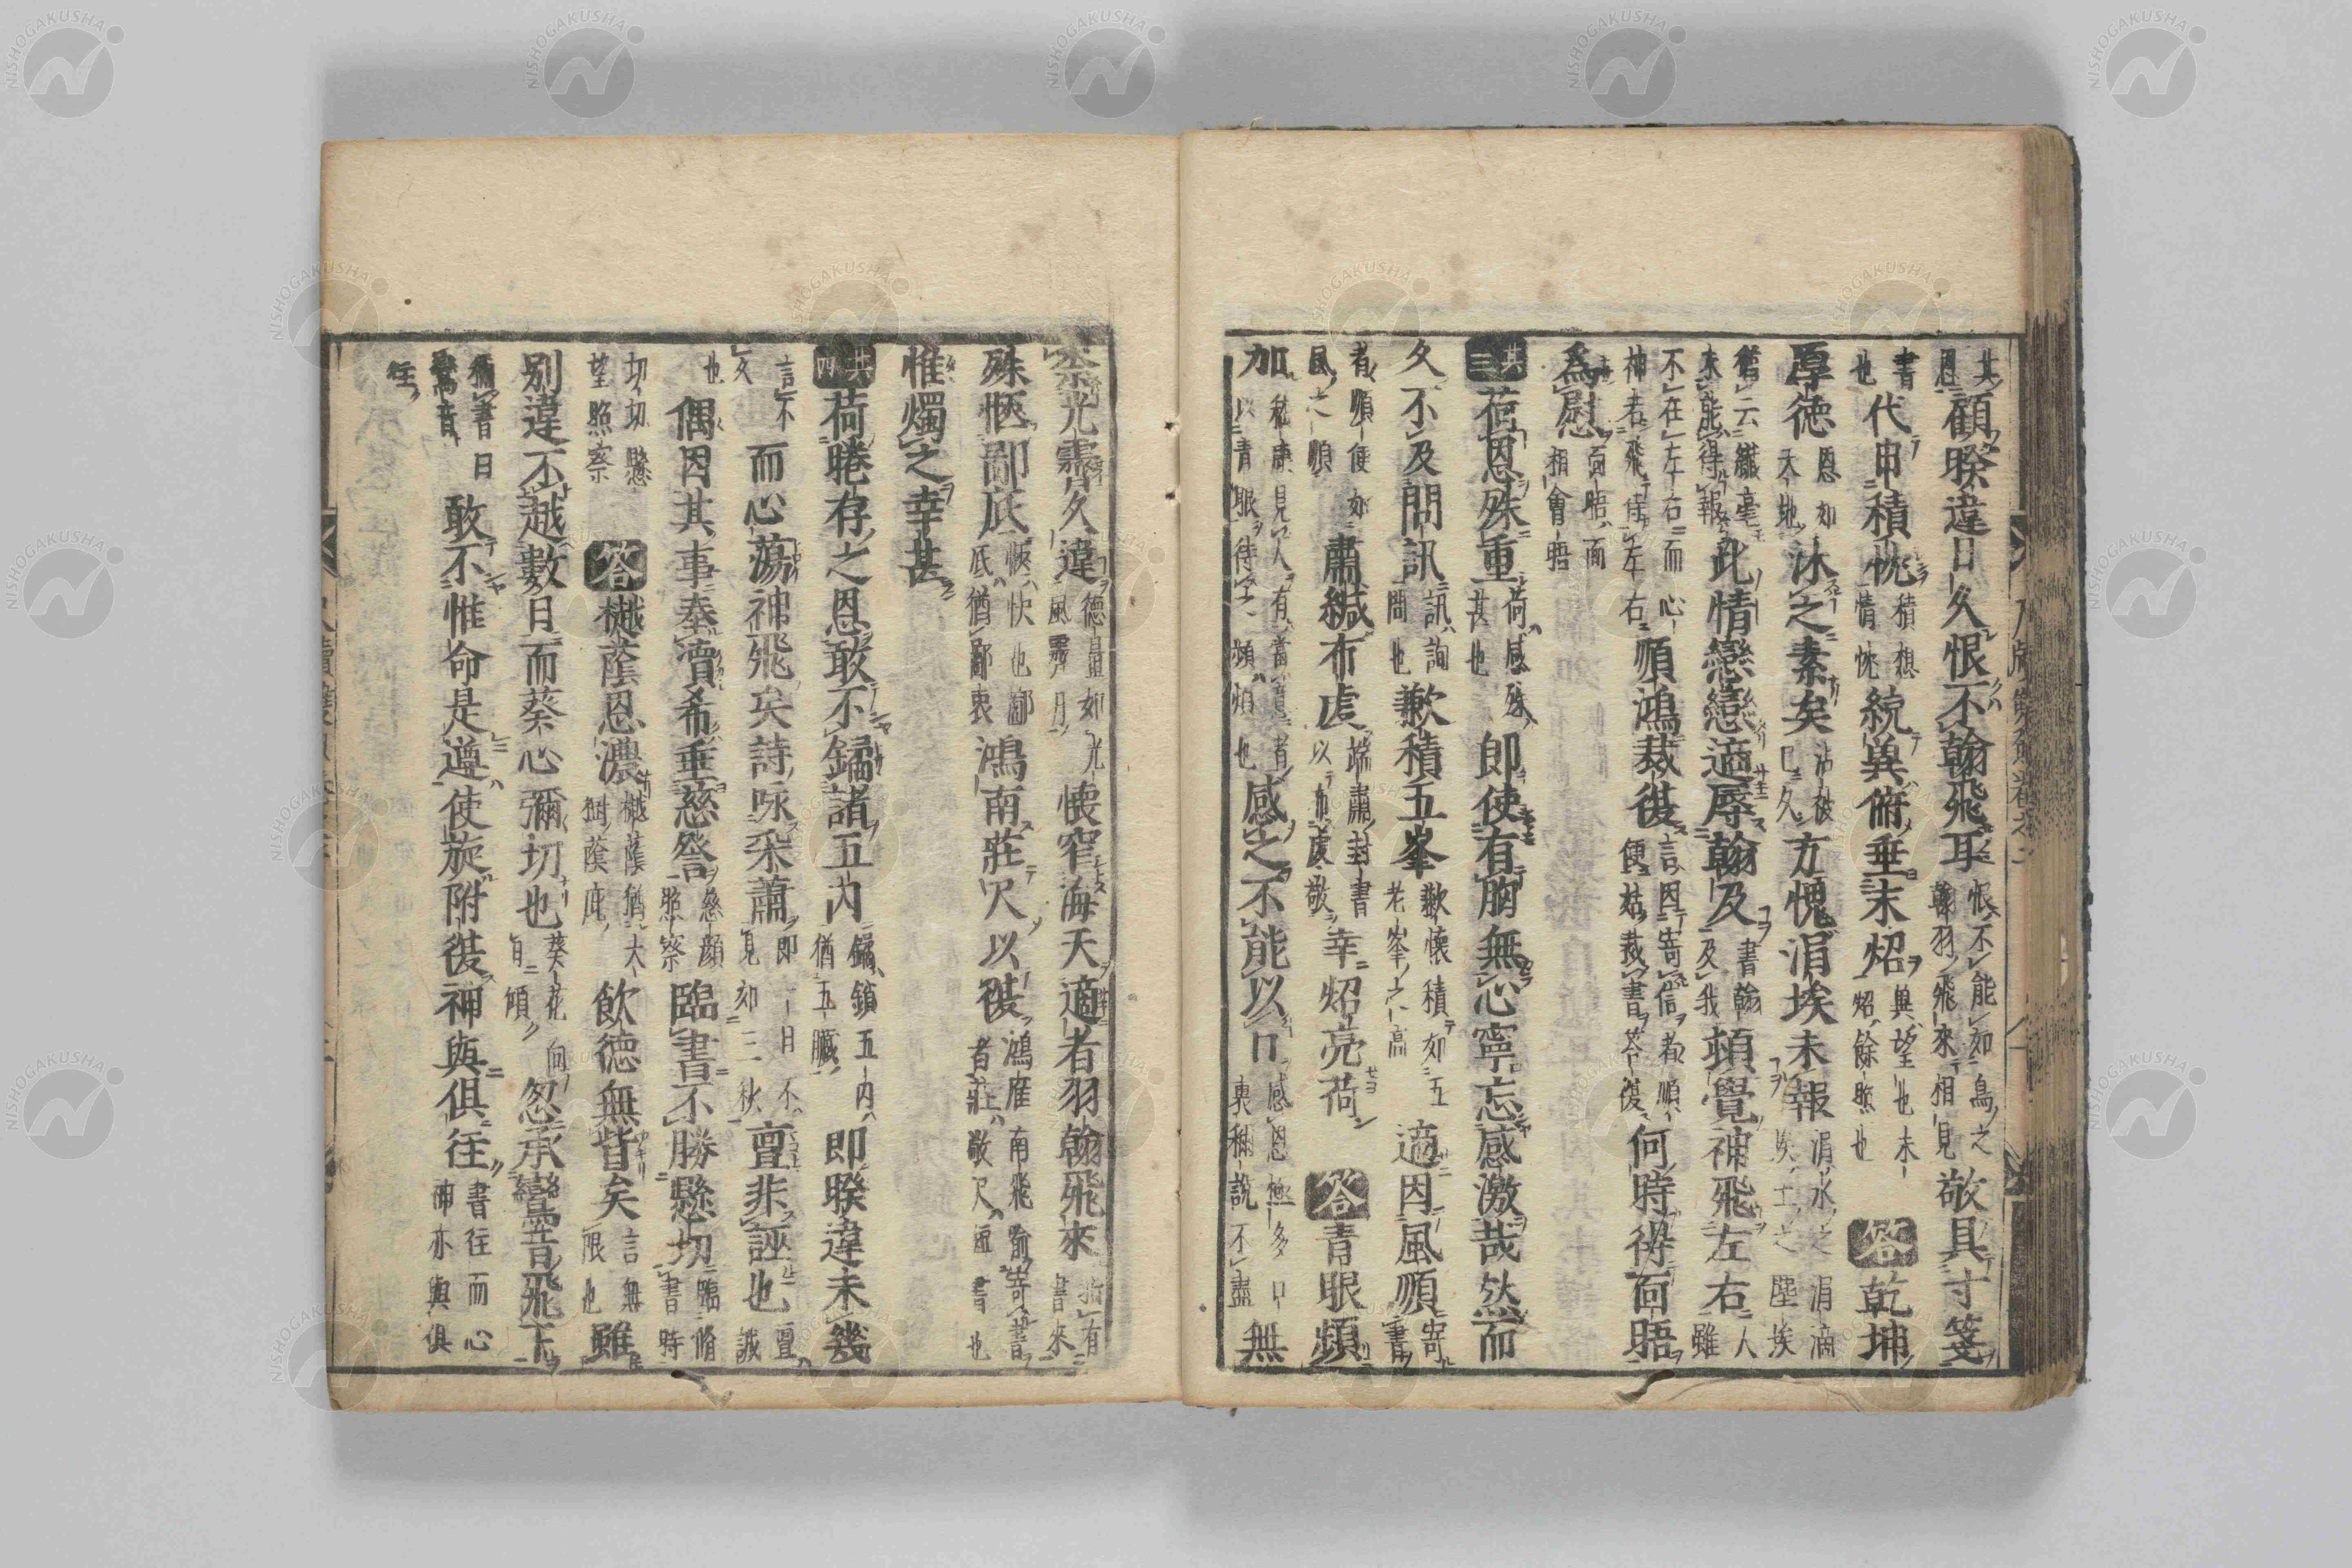 其恩顧暌違日久恨不翰飛耳恨不能如鳥之翰羽飛來相見敬具寸箋
書也代申積忱積想情忱統異俯垂末炤異望也末炤餘照也答乾坤
厚德恩如天地沐之素矣沾被已久方愧涓埃未報涓水之涓滴埃土之塵埃
此情戀戀適辱翰及書翰及我頓覺神飛左右人雖
不在左右而心神若飛侍左右順鴻裁復言因寄信者順便姑裁書答復何時得面晤
為慰面晤面相會晤
其三荷恩殊重荷感殊甚也即使有胸無心寧忘感激哉然而
久不及問訊訊詢問也歉積五峯歉懷積如五老峯之高適因風順寄書
者順便如風之順肅緘布虔端肅封書以布虔敬幸炤亮荷答青眼頻
加嵇康見人有當意者以青眼待之頻頻也感之不能以口感恩極多口裏稱說不盡無
柰光霽久違德量如光風霽月懷窄海天適者羽翰飛來指有書來
殊愜鄙底愜快也鄙底猶鄙衷鴻南莊尺以復鴻雁南飛喻寄書者莊敬尺短書也
惟燭之幸甚
其四荷睠存之恩敢不鐍諸五內鐍鎖五內猶五臟即暌違未幾
言不久而心蕩神飛矣詩咏采蕭即一日不見如三秋亶非誣也亶誠
也偶因其事奉瀆希垂慈詧慈顏照察臨書不勝懸切臨脩書時
切切懸望照察答樾蔭恩濃樾蔭猶大樹蔭庇飲德無訾矣言無限也雖
別違不越數日而葵心彌切也葵花向日傾忽承鸞音飛下
猶書日鸞音敢不惟命是遵使旋附復神與俱往書往而心神亦與俱
往
NISHOGAKUSHA